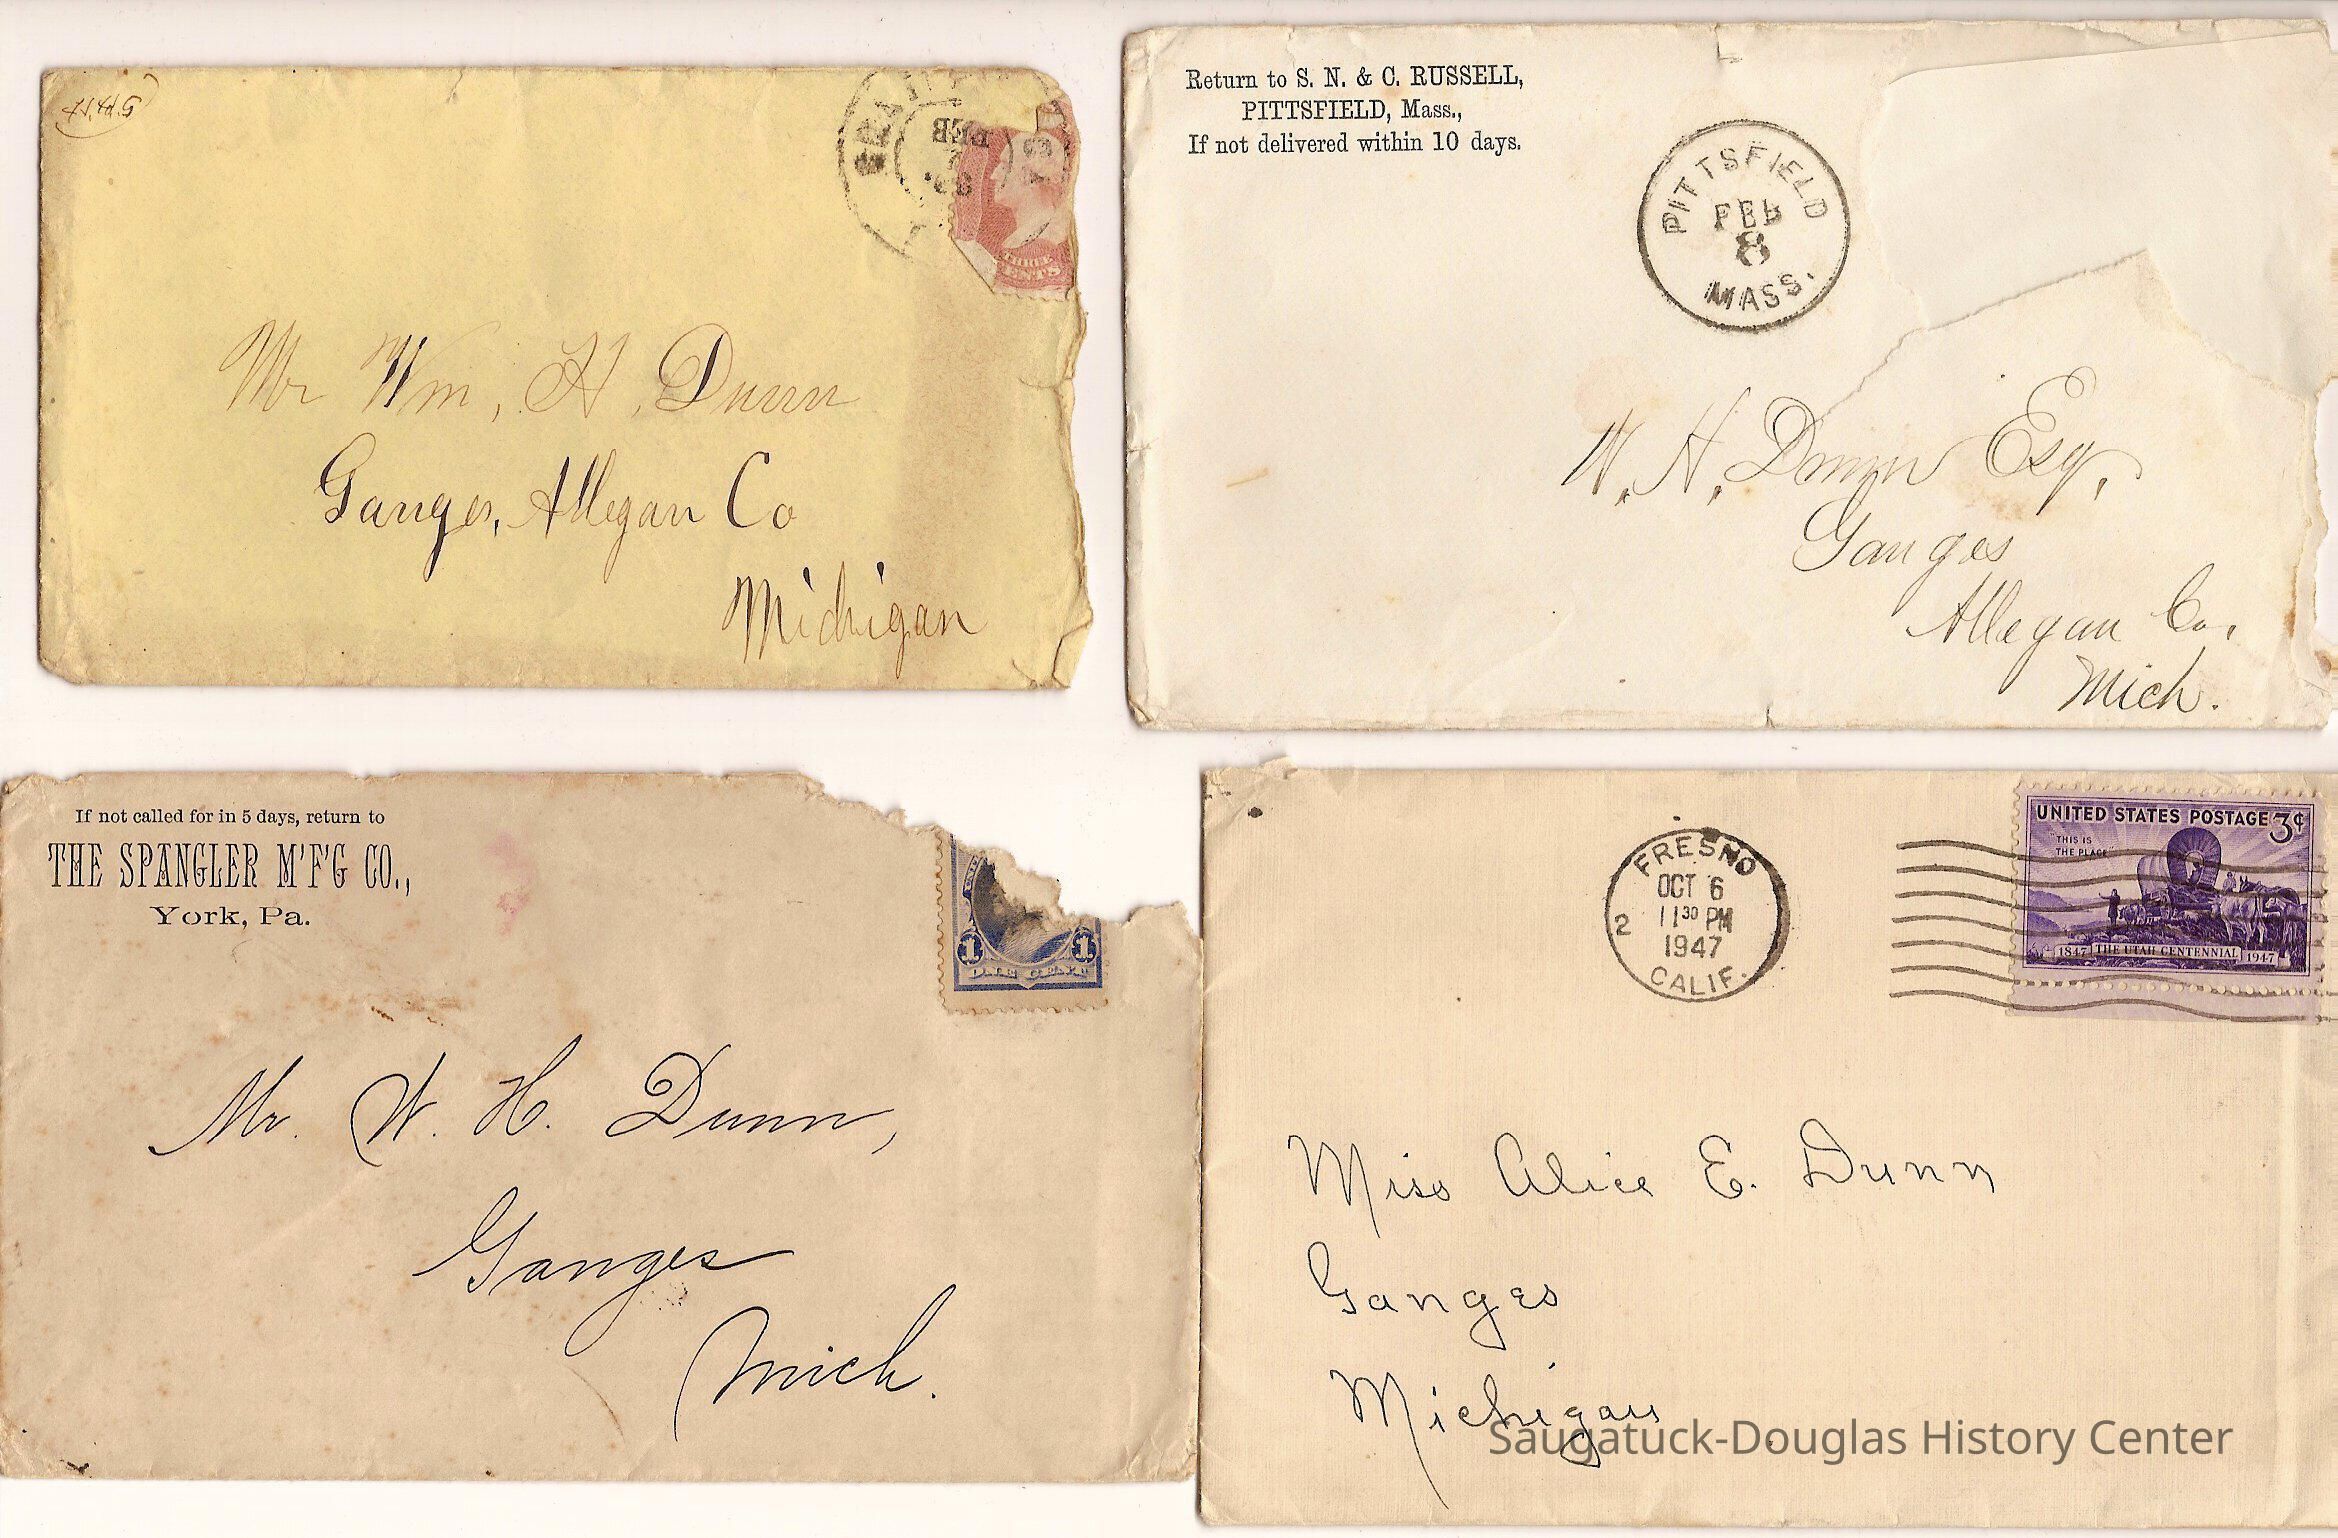 FEB
THREE
CENTS
Mr Wm, H, Dunn
Ganges, Allegan Co
Michigan
Return to S. N. & C. RUSSELL,
PITTSFIELD, Mass.,
If not delivered within 10 days.
PITTSFIELD
FEB
8
MASS.
W. H. Dunn Esq,
Ganges
Allegan Co,
Mich.
If not called for in 5 days, return to
THE SPANGLER M'F'G CO.,
York, Pa.
1 1
ONE CENT
Mr. W. H. Dunn,
Ganges
Mich.
FRESNO
OCT 6
2 11 30 PM
1947
CALIF.
UNITED STATES POSTAGE 3¢
"THIS IS
THE PLACE"
1847 THE UTAH CENTENNIAL 1947
Miss Alice E. Dunn
Ganges
Michigan
Saugatuck-Douglas History Center